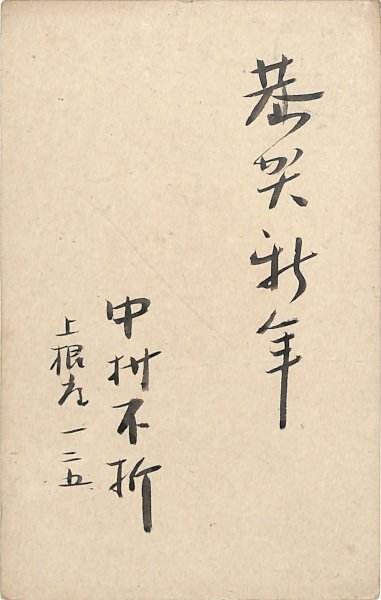 恭賀新年
中村不折
上根岸一二五